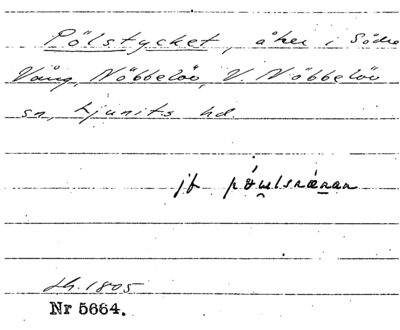 Pölstycket, åker i Södra
Vång, Nöbbelöv, V. Nöbbelöv
sn, Ljunits hd.
jf
Lh. 1805
Nr 5664.